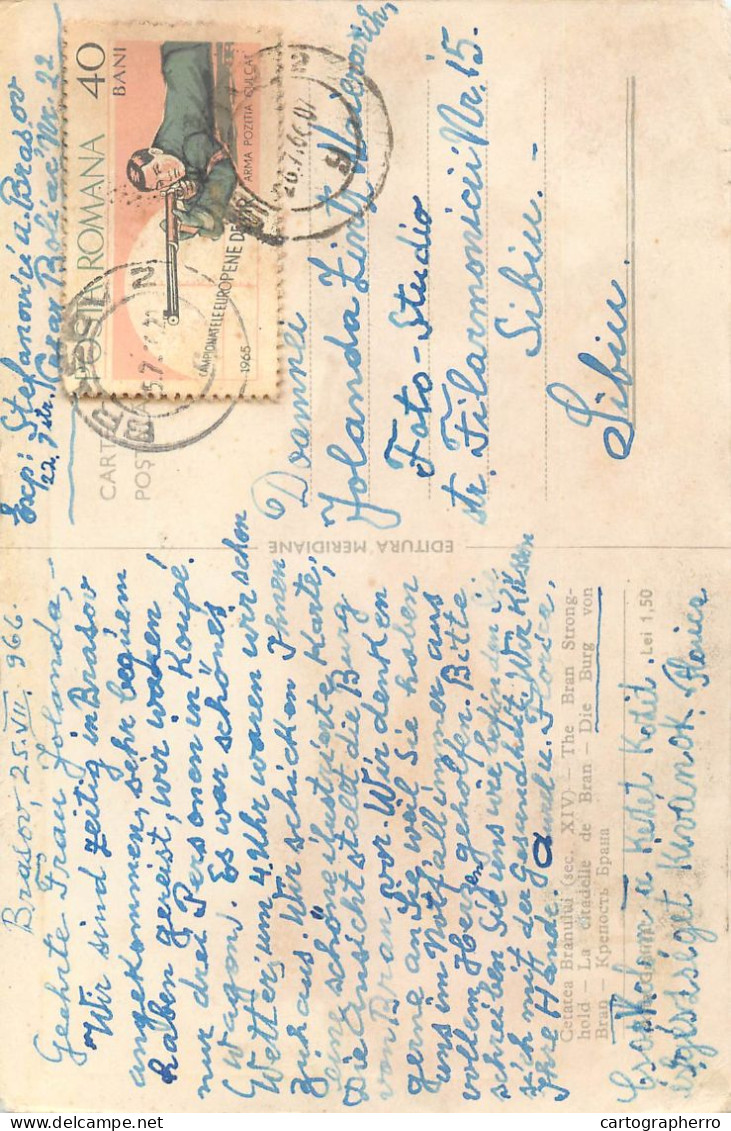 Brasov, 25.VII. 966.
Geehrte Frau Jolanda,
Wir sind zeitig in Brasov
angekommen, sehr bequem
haben gereist, wir waren
nur drei Personen in Koupé.
Wagon. Es war schönes
Wetter, um 4. Uhr waren wir schon
Zuhaus. Wir schicken Ihnen
schöne ilustrierte Karte,
Die Ansicht stellt die Burg
von Bran vor. Wir denken
gerne an Sie weil Sie haben
uns im Notfall immer aus
vollem Herzen geholfen. Bitte
schreiben Sie uns wie befinden Sie
sich mit der Gesundheit. Wir küssen
Ihre Hände. Florica.
Cetatea Branului (sec. XIV) — The Bran Strong-
hold — La citadelle de Bran — Die Burg von
Bran — Крепость Брана
Lei 1,50
Csokolom a Kezit
egészséget Kivánok Florica
EDITURA MERIDIANE
Exp: Stefanovici a. Brasov
22. Str. Cezar Boliac Nr. 22
CART
POŞ
POSTA ROMANA 40
BANI
ARMA POZITIA CULCAT
CAMPIONATELE EUROPENE DE TIR
1965
Doamnei
Jolanda Zintz
Foto-Studio
str. Filarmonicii Nr. 15.
Sibiu.
Sibiu.
cartographerro